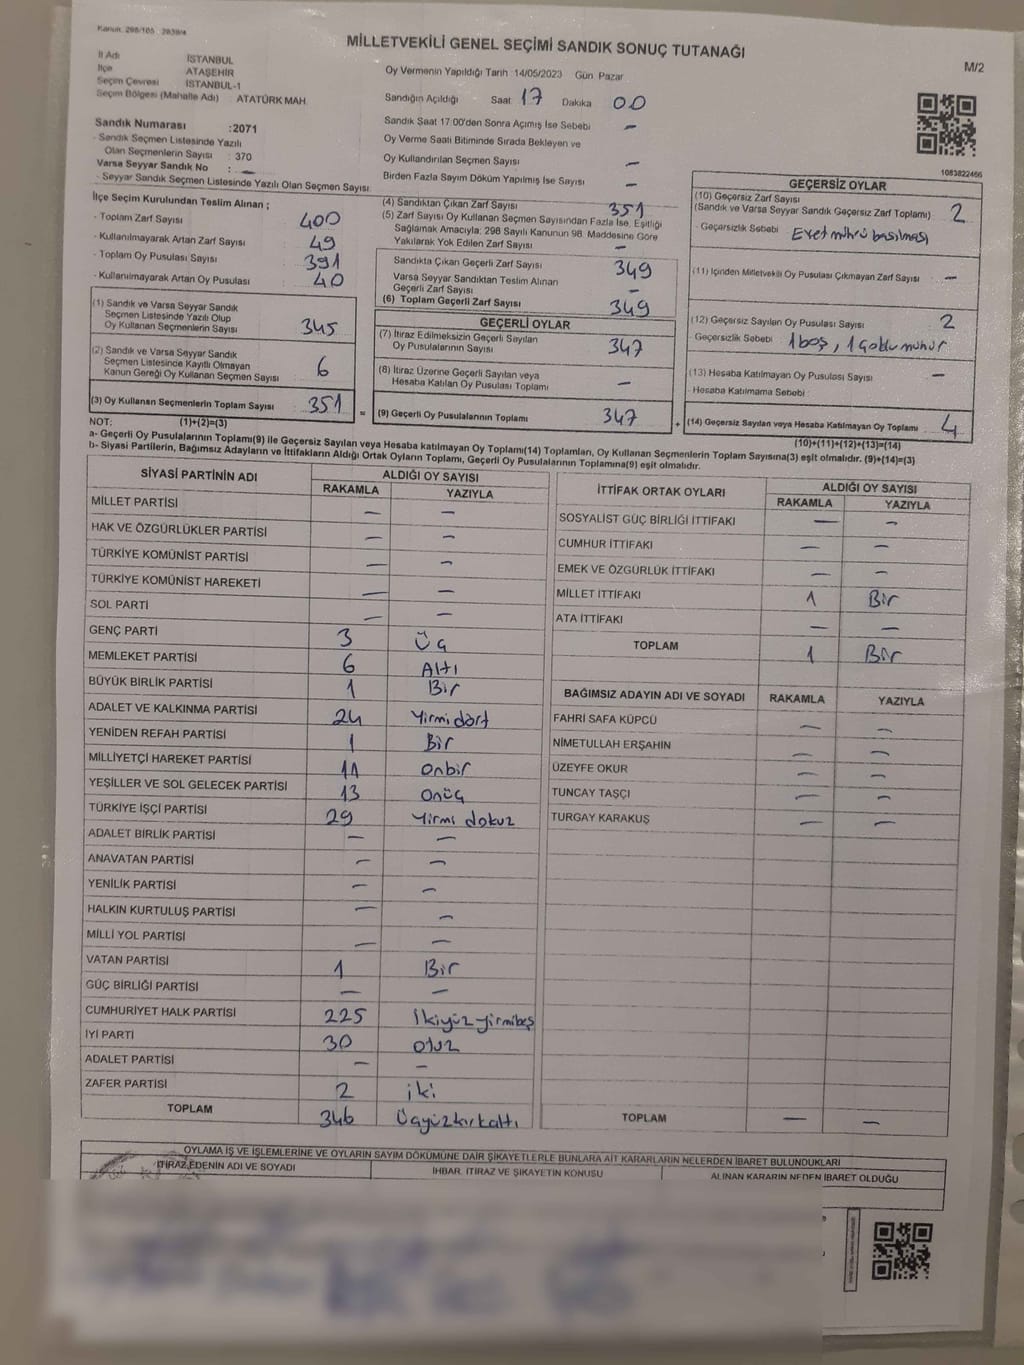 Kanun: 298/105 2839/4
MİLLETVEKİLİ GENEL SEÇİMİ SANDIK SONUÇ TUTANAĞI
M/2
İl Adı İSTANBUL
İlçe ATAŞEHİR
Seçim Çevresi İSTANBUL-1
Seçim Bölgesi (Mahalle Adı) : ATATÜRK MAH.
Sandık Numarası :2071
- Sandık Seçmen Listesinde Yazılı
Olan Seçmenlerin Sayısı : 370
Varsa Seyyar Sandık No : —
- Seyyar Sandık Seçmen Listesinde Yazılı Olan Seçmen Sayısı
Oy Vermenin Yapıldığı Tarih 14/05/2023 Gün Pazar
Sandığın Açıldığı Saat 17 Dakika 00
Sandık Saat 17:00'den Sonra Açılmış İse Sebebi —
Oy Verme Saati Bitiminde Sırada Bekleyen ve
Oy Kullandırılan Seçmen Sayısı —
Birden Fazla Sayım Döküm Yapılmış İse Sayısı —
1083822466
İlçe Seçim Kurulundan Teslim Alınan ;
- Toplam Zarf Sayısı 400
- Kullanılmayarak Artan Zarf Sayısı 49
- Toplam Oy Pusulası Sayısı 391
- Kullanılmayarak Artan Oy Pusulası 40
(1) Sandık ve Varsa Seyyar Sandık
Seçmen Listesinde Yazılı Olup
Oy Kullanan Seçmenlerin Sayısı 345
(2) Sandık ve Varsa Seyyar Sandık
Seçmen Listesinde Kayıtlı Olmayan
Kanun Gereği Oy Kullanan Seçmen Sayısı 6
(3) Oy Kullanan Seçmenlerin Toplam Sayısı 351
(1)+(2)=(3)
(4) Sandıktan Çıkan Zarf Sayısı 351
(5) Zarf Sayısı Oy Kullanan Seçmen Sayısından Fazla İse, Eşitliği
Sağlamak Amacıyla; 298 Sayılı Kanunun 98. Maddesine Göre
Yakılarak Yok Edilen Zarf Sayısı —
Sandıkta Çıkan Geçerli Zarf Sayısı 349
Varsa Seyyar Sandıktan Teslim Alınan
Geçerli Zarf Sayısı —
(6) Toplam Geçerli Zarf Sayısı 349
GEÇERLİ OYLAR
(7) İtiraz Edilmeksizin Geçerli Sayılan
Oy Pusulalarının Sayısı 347
(8) İtiraz Üzerine Geçerli Sayılan veya
Hesaba Katılan Oy Pusulası Toplamı —
= (9) Geçerli Oy Pusulalarının Toplamı 347
GEÇERSİZ OYLAR
(10) Geçersiz Zarf Sayısı
(Sandık ve Varsa Seyyar Sandık Geçersiz Zarf Toplamı) 2
- Geçersizlik Sebebi Evet mührü basılması
(11) İçinden Milletvekili Oy Pusulası Çıkmayan Zarf Sayısı —
(12) Geçersiz Sayılan Oy Pusulası Sayısı 2
Geçersizlik Sebebi 1 boş, 1 çoklu mühür
(13) Hesaba Katılmayan Oy Pusulası Sayısı —
Hesaba Katılmama Sebebi
+ (14) Geçersiz Sayılan veya Hesaba Katılmayan Oy Toplamı 4
(10)+(11)+(12)+(13)=(14)
NOT:
a- Geçerli Oy Pusulalarının Toplamı(9) ile Geçersiz Sayılan veya Hesaba katılmayan Oy Toplamı(14) Toplamları, Oy Kullanan Seçmenlerin Toplam Sayısına(3) eşit olmalıdır. (9)+(14)=(3)
b- Siyasi Partilerin, Bağımsız Adayların ve İttifakların Aldığı Ortak Oyların Toplamı, Geçerli Oy Pusulalarının Toplamına(9) eşit olmalıdır.
SİYASİ PARTİNİN ADI ALDIĞI OY SAYISI
RAKAMLA YAZIYLA
MİLLET PARTİSİ — —
HAK VE ÖZGÜRLÜKLER PARTİSİ — —
TÜRKİYE KOMÜNİST PARTİSİ — —
TÜRKİYE KOMÜNİST HAREKETİ — —
SOL PARTİ — —
GENÇ PARTİ 3 Üç
MEMLEKET PARTİSİ 6 Altı
BÜYÜK BİRLİK PARTİSİ 1 Bir
ADALET VE KALKINMA PARTİSİ 24 Yirmidört
YENİDEN REFAH PARTİSİ 1 Bir
MİLLİYETÇİ HAREKET PARTİSİ 11 Onbir
YEŞİLLER VE SOL GELECEK PARTİSİ 13 Onüç
TÜRKİYE İŞÇİ PARTİSİ 29 Yirmi dokuz
ADALET BİRLİK PARTİSİ — —
ANAVATAN PARTİSİ — —
YENİLİK PARTİSİ — —
HALKIN KURTULUŞ PARTİSİ — —
MİLLİ YOL PARTİSİ — —
VATAN PARTİSİ 1 Bir
GÜÇ BİRLİĞİ PARTİSİ — —
CUMHURİYET HALK PARTİSİ 225 İkiyüz yirmibeş
İYİ PARTİ 30 Otuz
ADALET PARTİSİ — —
ZAFER PARTİSİ 2 iki
TOPLAM 346 Üçyüzkırkaltı
İTTİFAK ORTAK OYLARI ALDIĞI OY SAYISI
RAKAMLA YAZIYLA
SOSYALİST GÜÇ BİRLİĞİ İTTİFAKI — —
CUMHUR İTTİFAKI — —
EMEK VE ÖZGÜRLÜK İTTİFAKI — —
MİLLET İTTİFAKI 1 Bir
ATA İTTİFAKI — —
TOPLAM 1 Bir
BAĞIMSIZ ADAYIN ADI VE SOYADI RAKAMLA YAZIYLA
FAHRİ SAFA KÜPCÜ — —
NİMETULLAH ERŞAHİN — —
ÜZEYFE OKUR — —
TUNCAY TAŞÇI — —
TURGAY KARAKUŞ — —
TOPLAM — —
OYLAMA İŞ VE İŞLEMLERİNE VE OYLARIN SAYIM DÖKÜMÜNE DAİR ŞİKAYETLERLE BUNLARA AİT KARARLARIN NELERDEN İBARET BULUNDUKLARI
İTİRAZ EDENİN ADI VE SOYADI İHBAR, İTİRAZ VE ŞİKAYETİN KONUSU ALINAN KARARIN NEDEN İBARET OLDUĞU